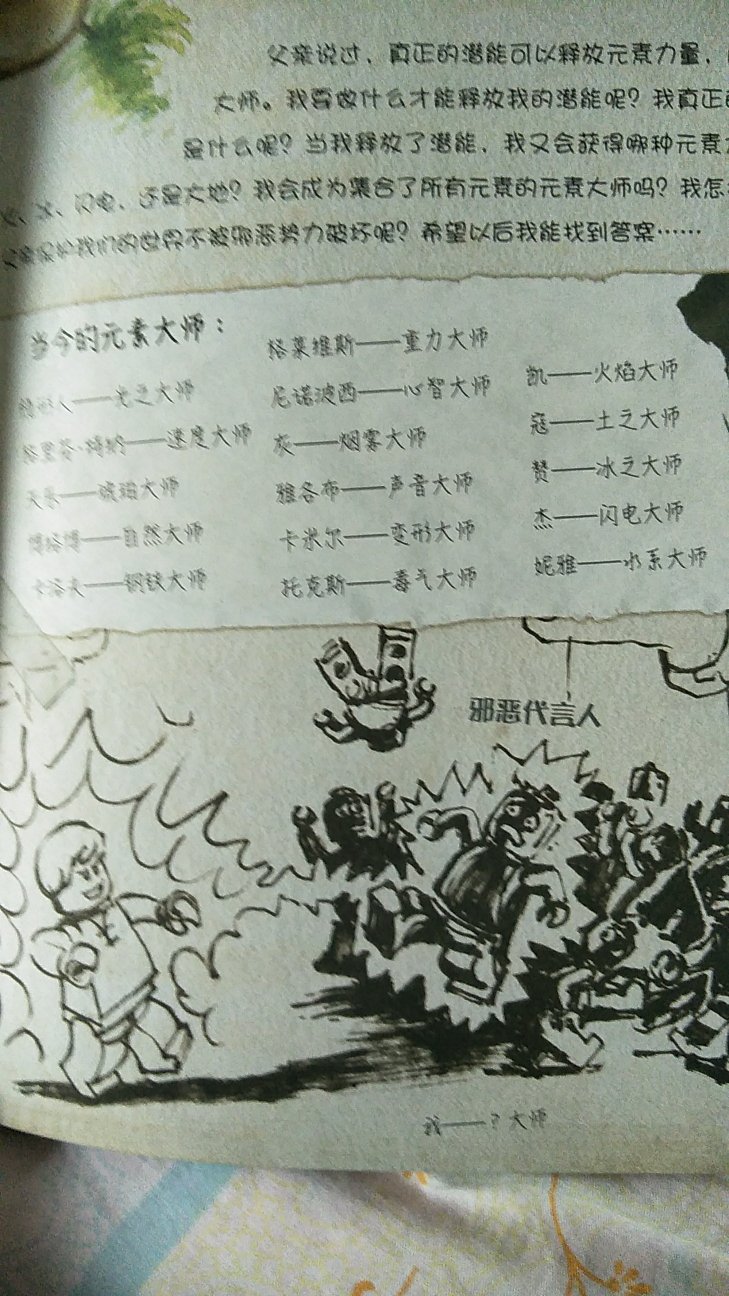 父亲说过，真正的潜能可以释放元素力量，
大师。我要做什么才能释放我的潜能呢？我真正的
是什么呢？当我释放了潜能，我又会获得哪种元素
、冰、闪电、还是大地？我会成为集合了所有元素的元素大师吗？我怎
保护我们的世界不被邪恶势力破坏呢？希望以后我能找到答案……
当今的元素大师：
隐形人——光之大师
格里芬·特纳——速度大师
——琥珀大师
博洛博——自然大师
卡洛夫——钢铁大师
格莱维斯——重力大师
尼诺波西——心智大师
灰——烟雾大师
雅各布——声音大师
卡米尔——变形大师
托克斯——毒气大师
凯——火焰大师
寇——土之大师
赞——冰之大师
杰——闪电大师
妮雅——水系大师
邪恶代言人
我——？大师